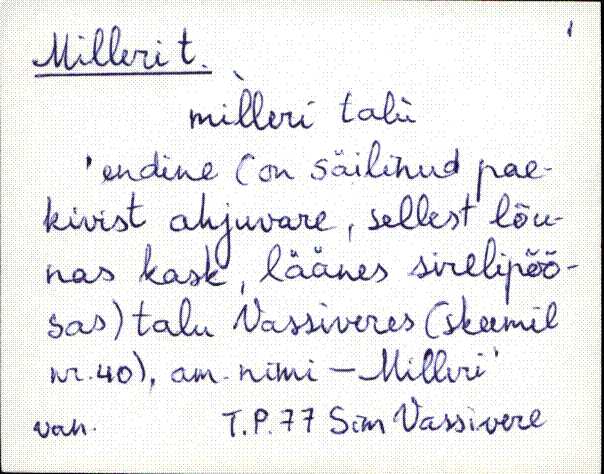 1
Milleri t.
mìlleri talu
'endine (on säilinud pae-
kivist ahjuvare, sellest lõu-
nas kask, läänes sirelipõõ-
sas) talu Vassiveres (skeemil
nr. 40), am. nimi – Milleri'
van. T.P. 77 Sim Vassivere